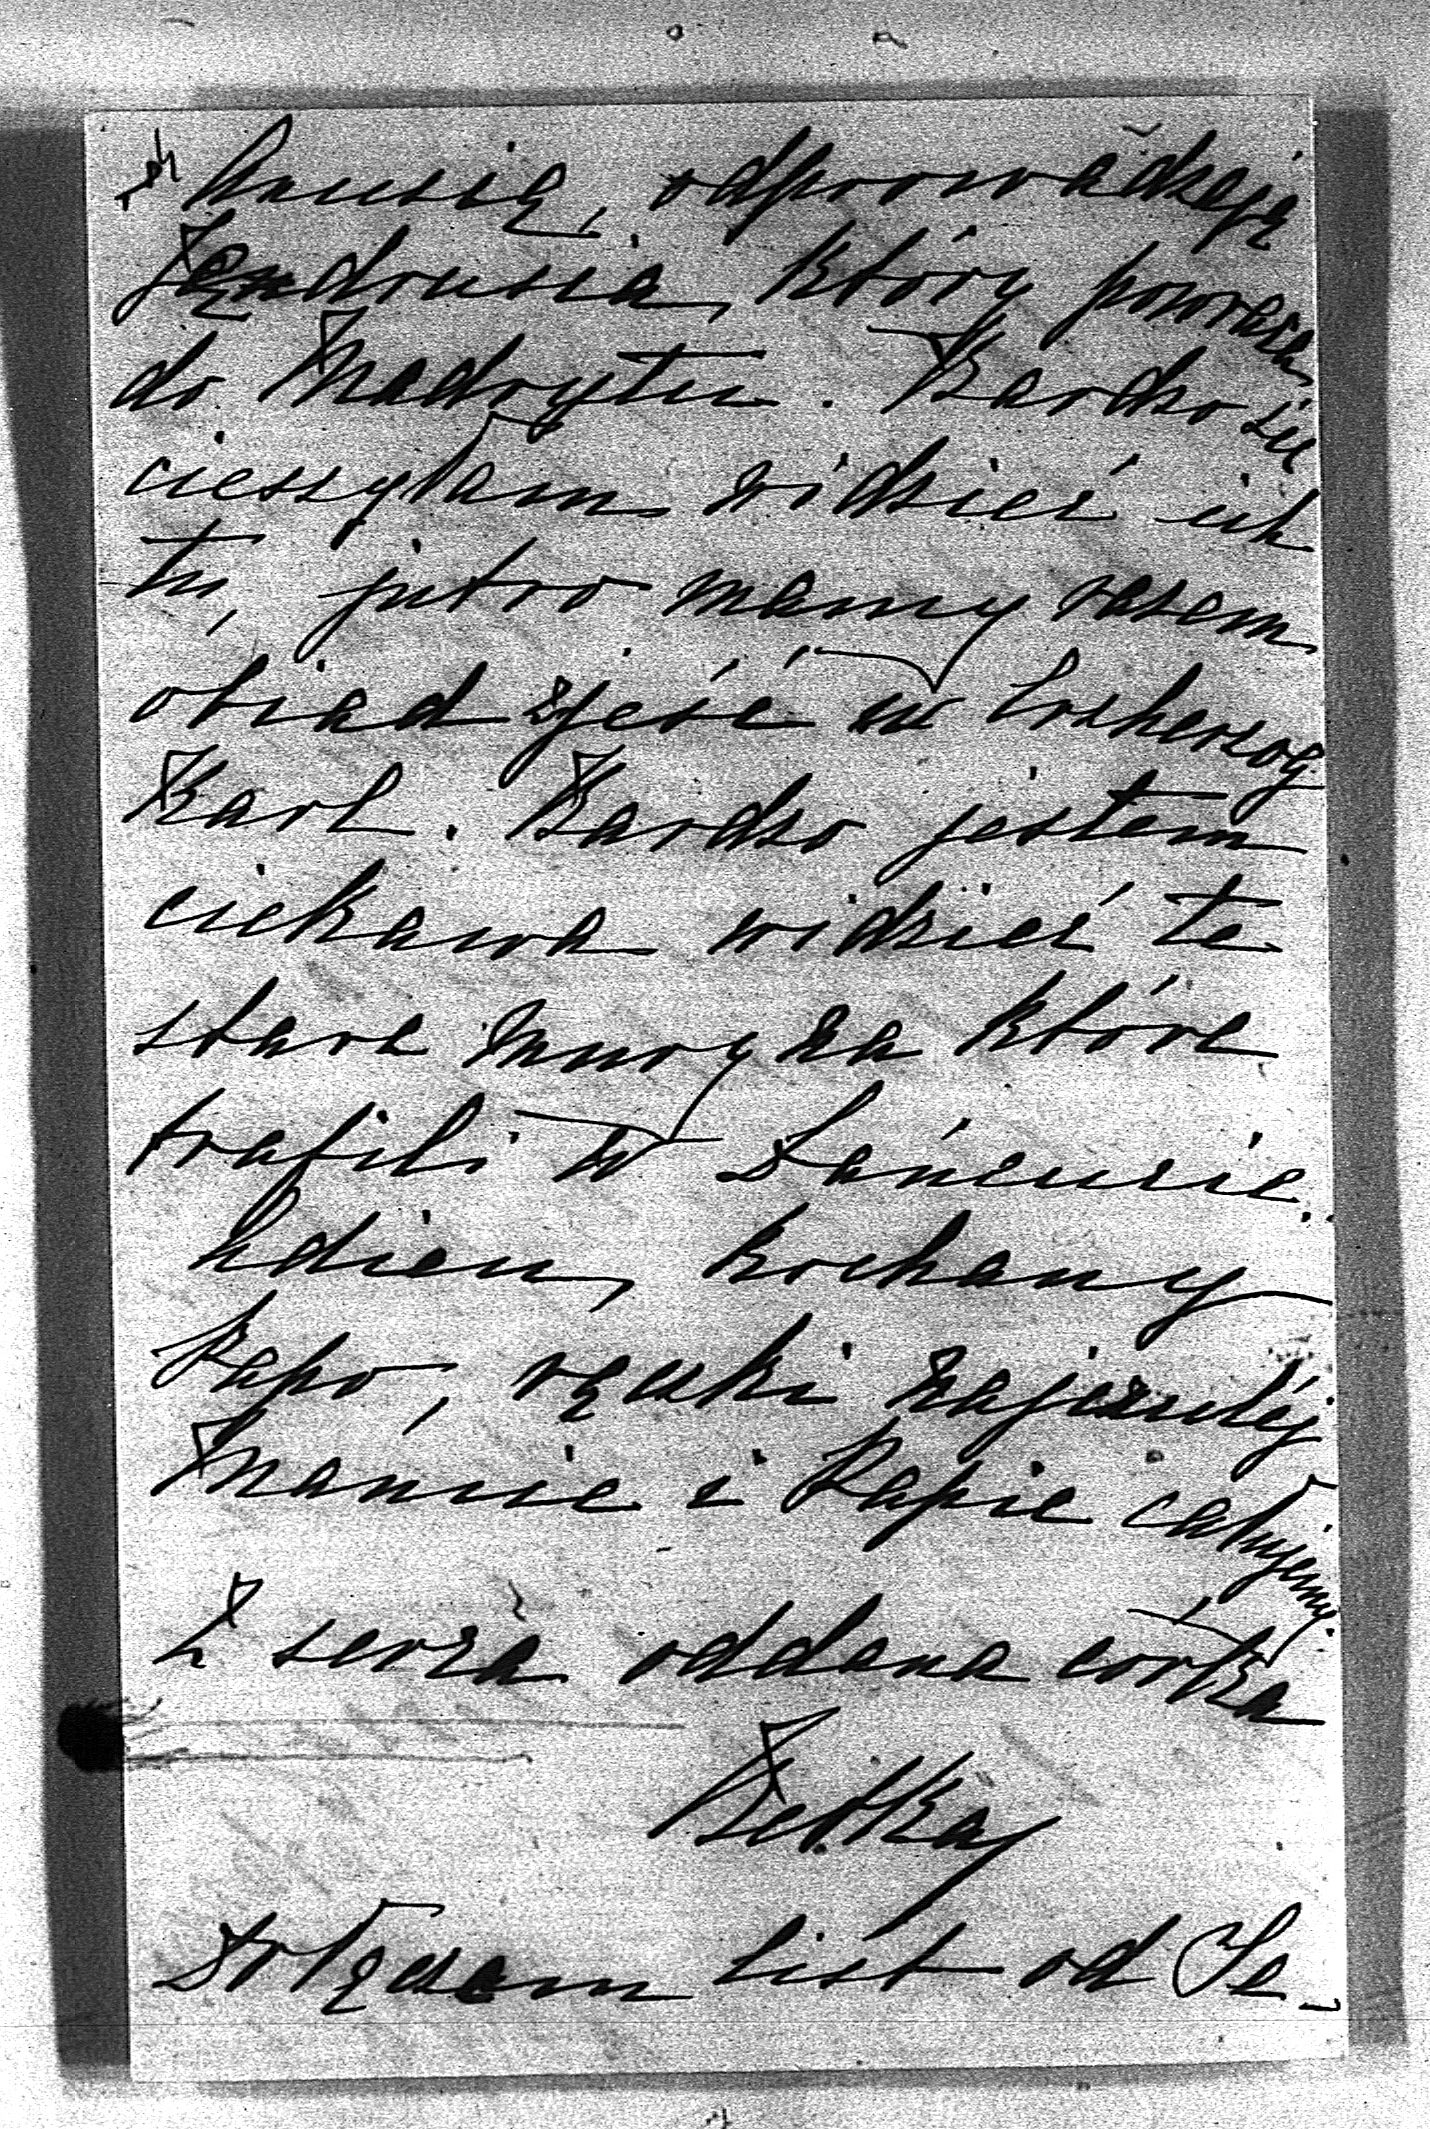 z Anusią, odprowadzają
Jendrusia, który powraca
do Madrytu. Bardzo się
cieszyłam widzieć ich
tu, jutro mamy razem
obiad zjeść w Erzherzog
Karl. Bardzo jestem
ciekawa widzieć te
stare mury na które
trafili w Łańcucie.
Adieu, kochany
Papo, rączki najczuléj
Mamie i Papie całujemy
Z serca oddana córka
Betka
Dołączam list od Se-